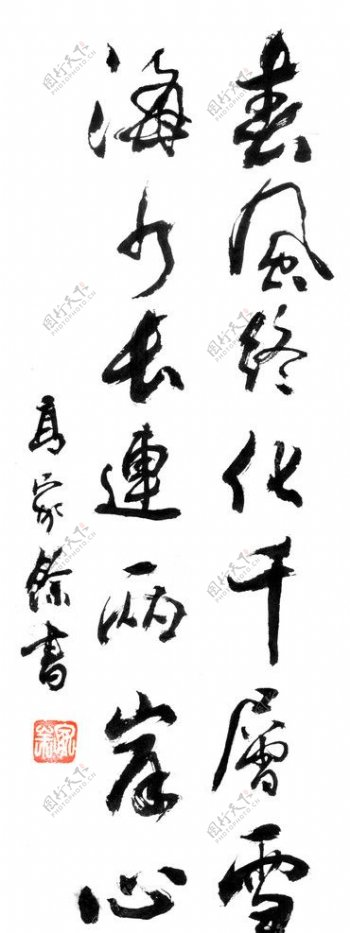 春风终化千層雪
海水长連两岸心
高家餘書
图行天下
PHOTOPHOTO.CN